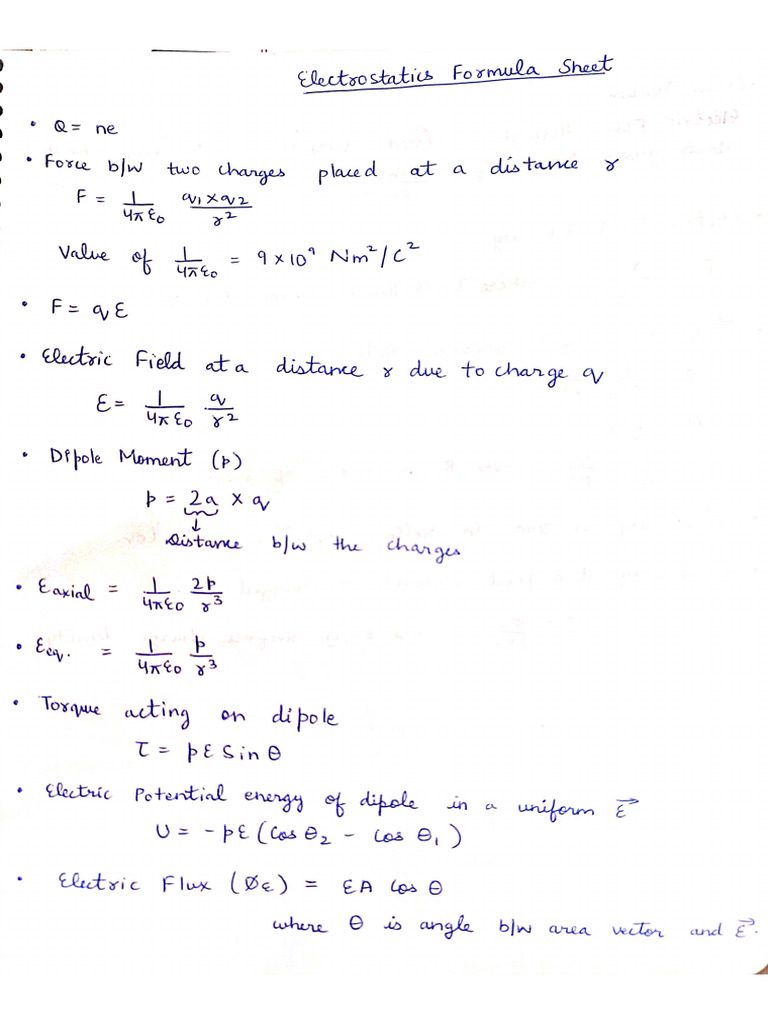 Electrostatics Formula Sheet
• Q = ne
• Force b/w two charges placed at a distance r
F = 1/4πε0 q1 × q2/r²
Value of 1/4πε0 = 9 × 10⁹ Nm²/C²
• F = qE
• Electric Field at a distance r due to charge q
E = 1/4πε0 q/r²
• Dipole Moment (p)
p = 2a × q
↓
Distance b/w the charges
• Eaxial = 1/4πε0 2p/r³
• Eeq. = 1/4πε0 p/r³
• Torque acting on dipole
τ = pE Sin θ
• Electric Potential energy of dipole in a uniform E⃗
U = -pE (Cos θ2 - Cos θ1)
• Electric Flux (ØE) = EA Cos θ
where θ is angle b/w area vector and E⃗.